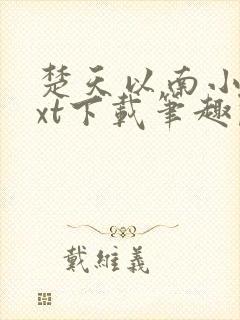 楚天以南小
xt下載筆趣
戴維義